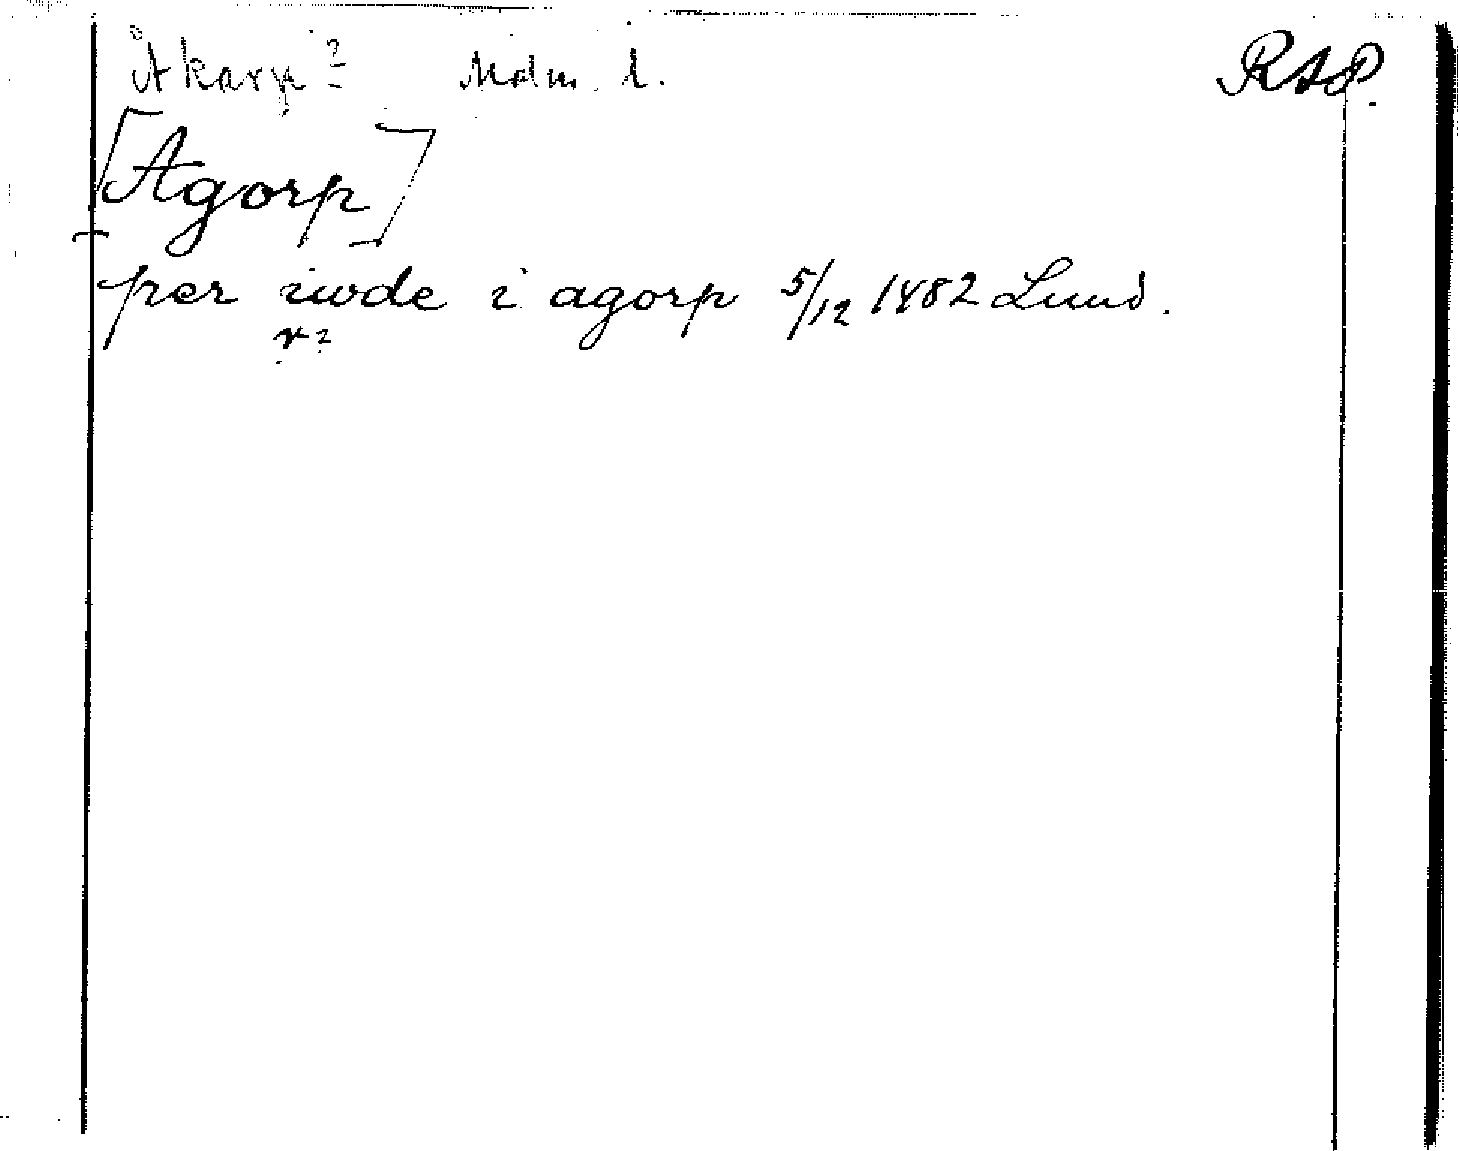 Åkarp? Mdm. l. RAP.
[Agorp]
per iwde i agorp 5/12 1482 Lund.
r?